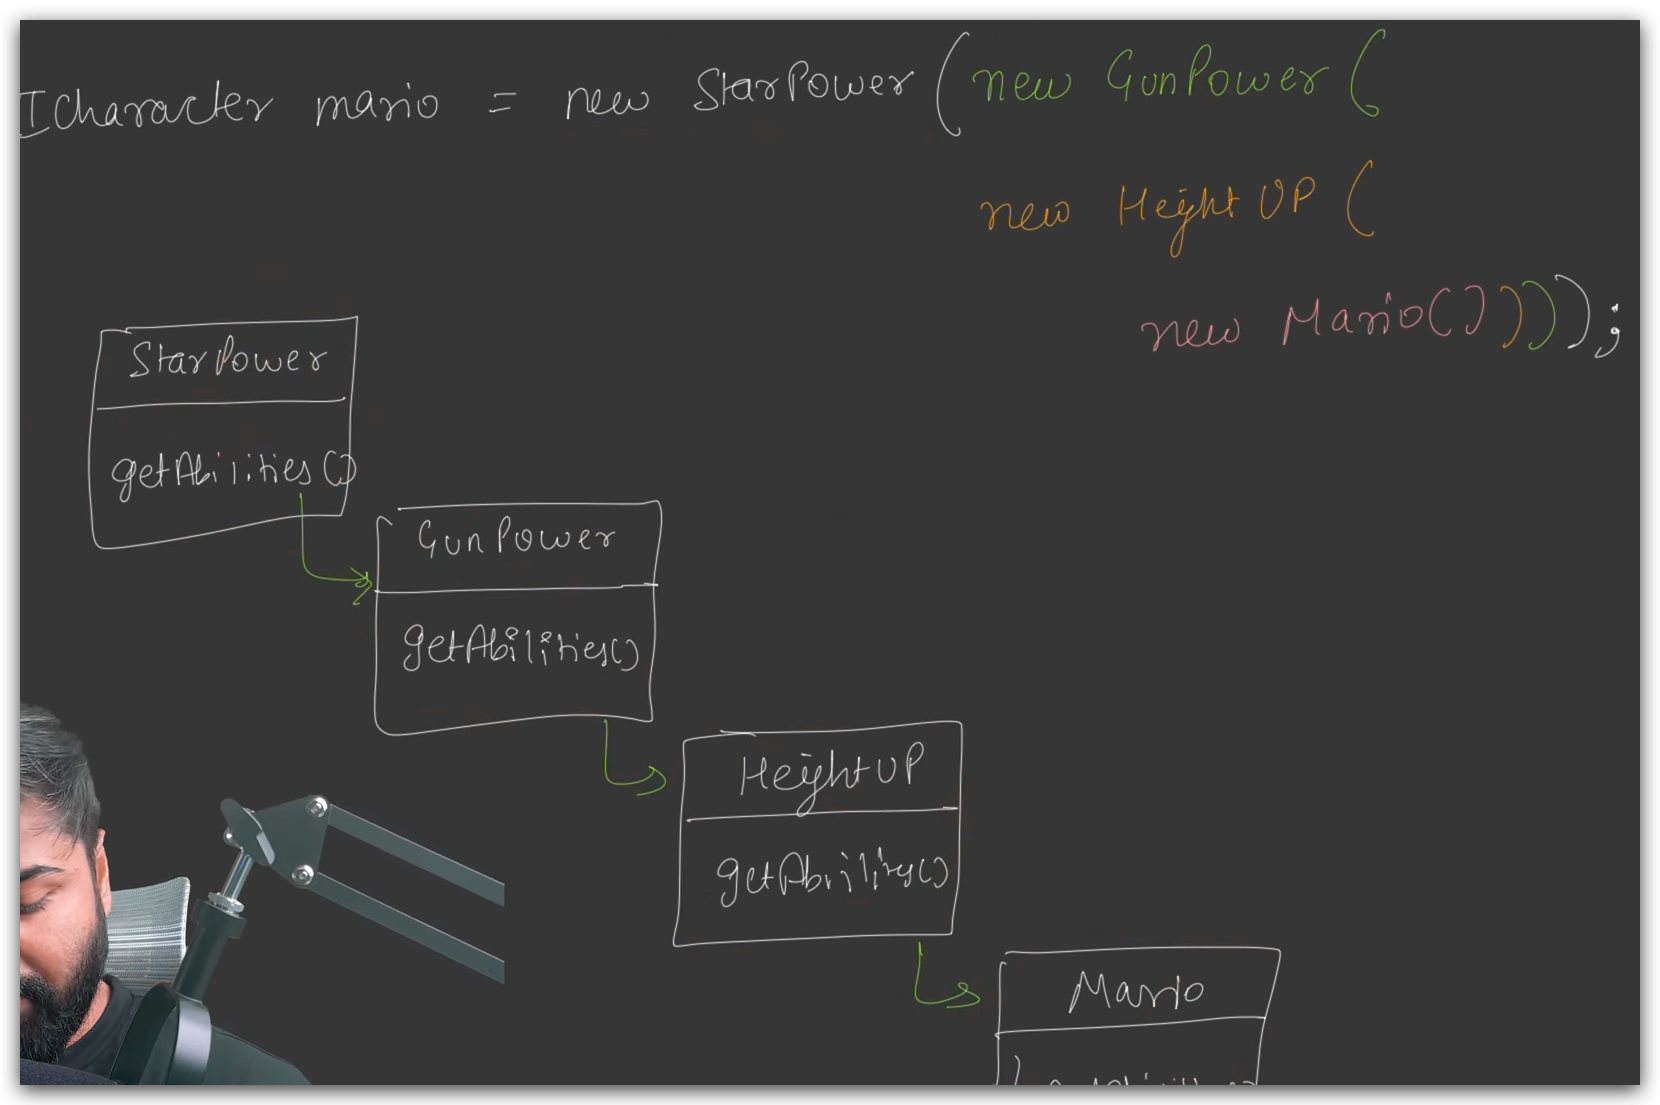 ICharacter mario = new StarPower ( new GunPower (
new HeightUP (
new Mario())));
StarPower
getAbilities()
GunPower
getAbilities()
HeightUP
getAbilities()
Mario